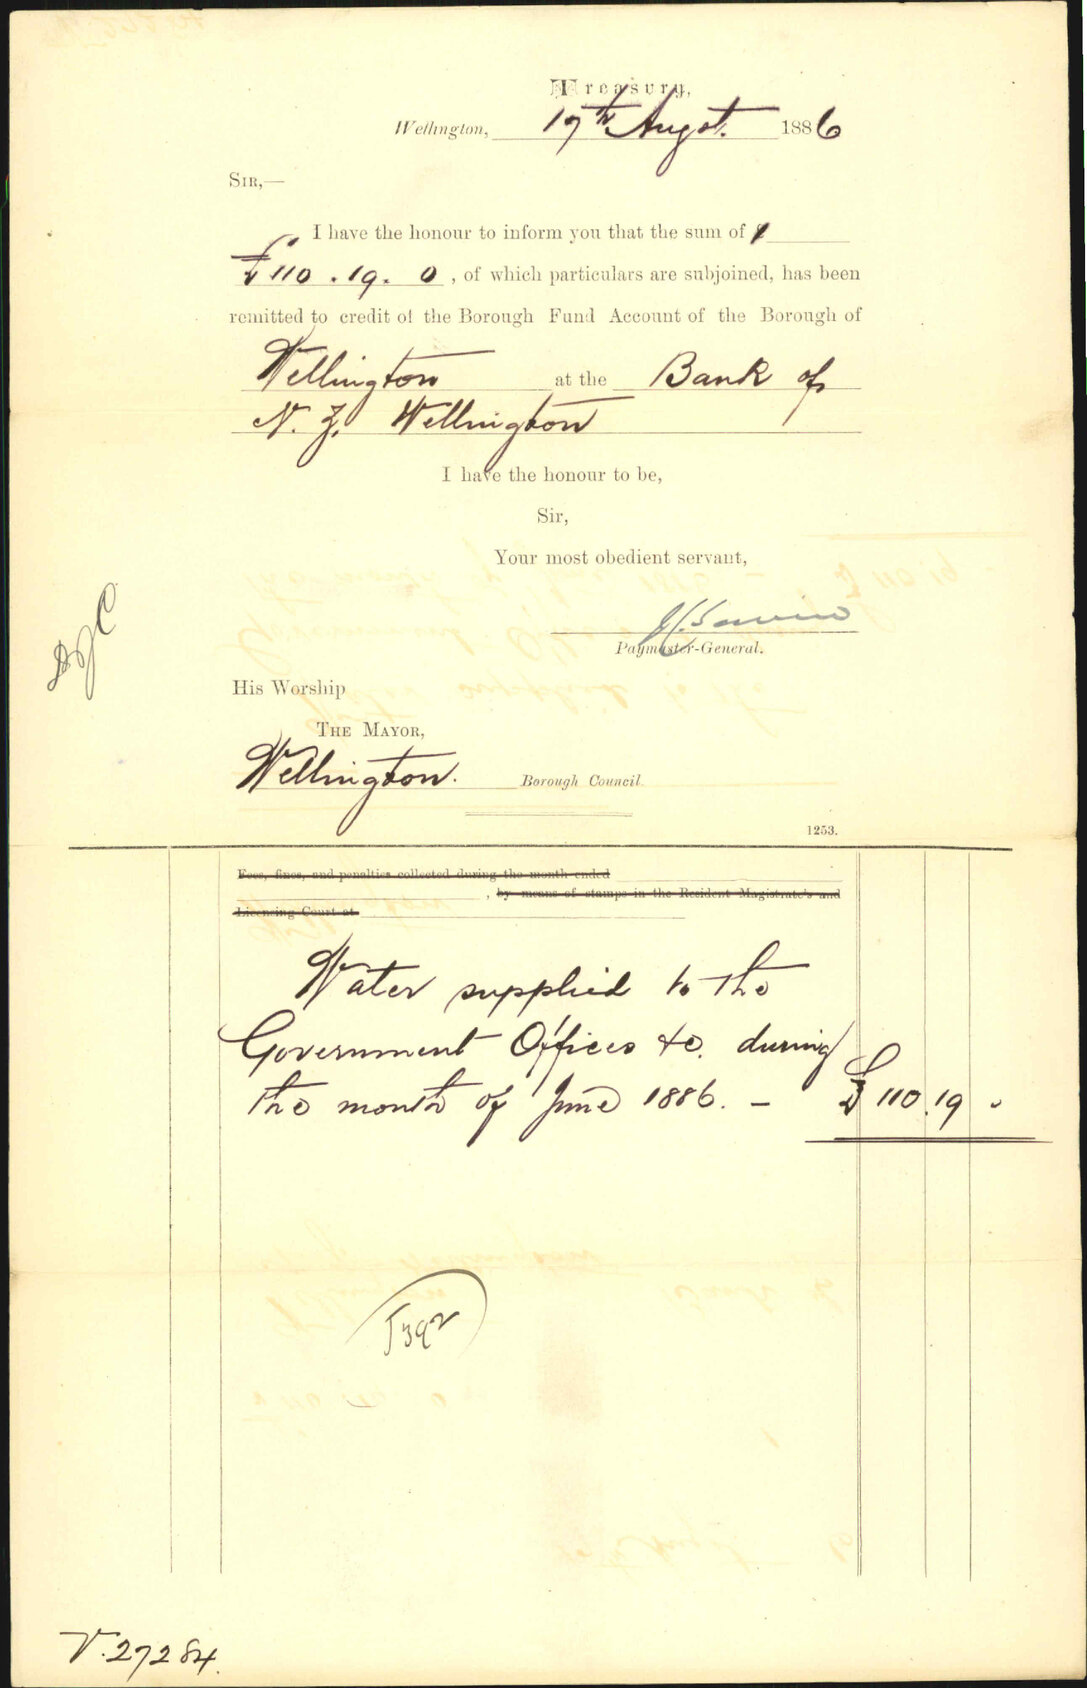 Treasury,
Wellington, 17th Augst. 1886
SIR,—
I have the honour to inform you that the sum of
£110 . 19 . 0 , of which particulars are subjoined, has been
remitted to credit of the Borough Fund Account of the Borough of
Wellington at the Bank of
N. Z. Wellington
I have the honour to be,
Sir,
Your most obedient servant,
Paymaster-General.
His Worship
THE MAYOR,
Wellington. Borough Council.
1253.
Fees, fines, and penalties collected during the month ended
, by means of stamps in the Resident Magistrate's and
Licensing Court at
Water supplied to the
Government Offices &c. during
the month of June 1886. — £ 110 . 19 .
1392
V. 27284.